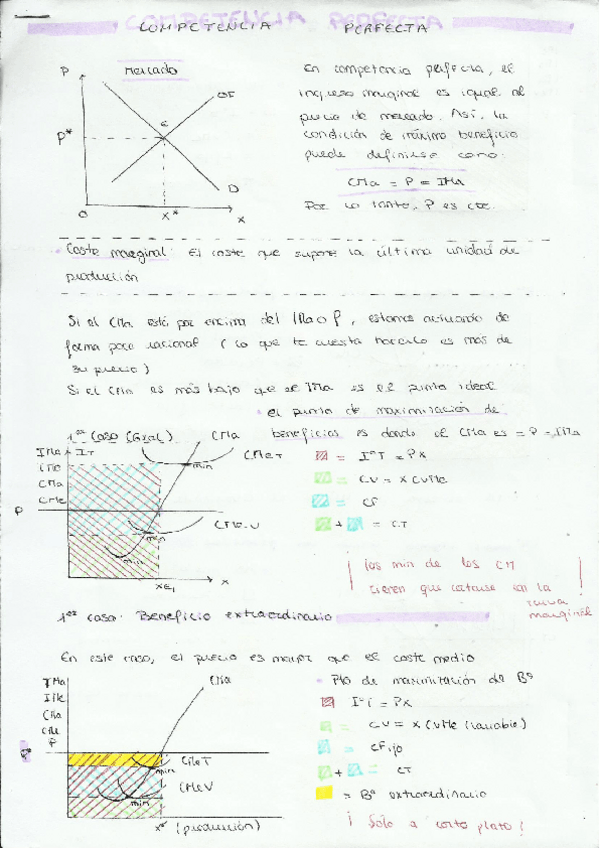 COMPETENCIA PERFECTA
P
Mercado
OF
P*
E
D
O
X*
X
En competencia perfecta, el
ingreso marginal es igual al
precio de mercado. Así, la
condición de máximo beneficio
puede definirse como:
CMa = P = IMa
Por lo tanto, P es cte.
Coste marginal: El coste que supone la última unidad de
producción
Si el CMa está por encima del IMa o P, estamos actuando de
forma poco racional (lo que te cuesta hacerlo es más de
su precio)
Si el CMa es más bajo que el IMa es el punto ideal
el punto de maximización de
beneficios es donde el CMa es = P = IMa
1er Caso (Gral)
CMa
IMa
IT
CMeT
CMa
CMe
P
min
CMeV
min
min
XE1
X
= I°T = PX
= CV = X CVMe
= CF
+ = CT
¡los min de los CM
tienen que cortarse en la
curva
marginal!
1er caso: Beneficio extraordinario
En este caso, el precio es mayor que el coste medio
IMa
IMe
CMa
CMe
P
P*
CMa
CMeT
min
CMeV
min
X* (producción)
Pto de maximización de B°
I°T = PX
= CV = X CVMe (variable)
= CFijo
+ = CT
= B° extraordinario
¡Sólo a corto plazo!